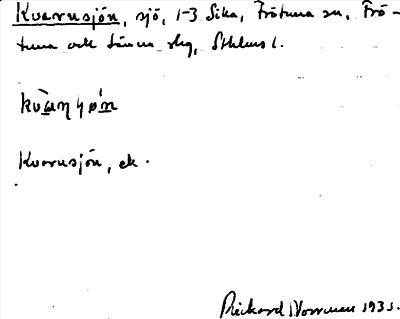 Kvarnsjön, sjö, 1-3 Sika, Frötuna sn, Frö-
tuna och Länna slg, Sthlms l.
kvàɳʃø̀n
Kvarnsjön, ek.
Rickard Norrman 1935.